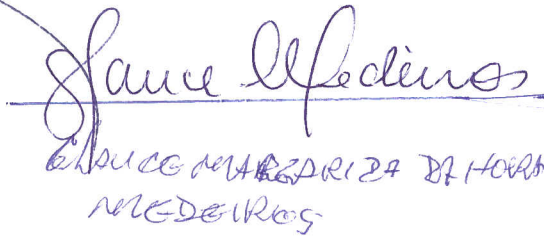 Glauce Medeiros
GLAUCE MARGARIDA DA HORA
MEDEIROS